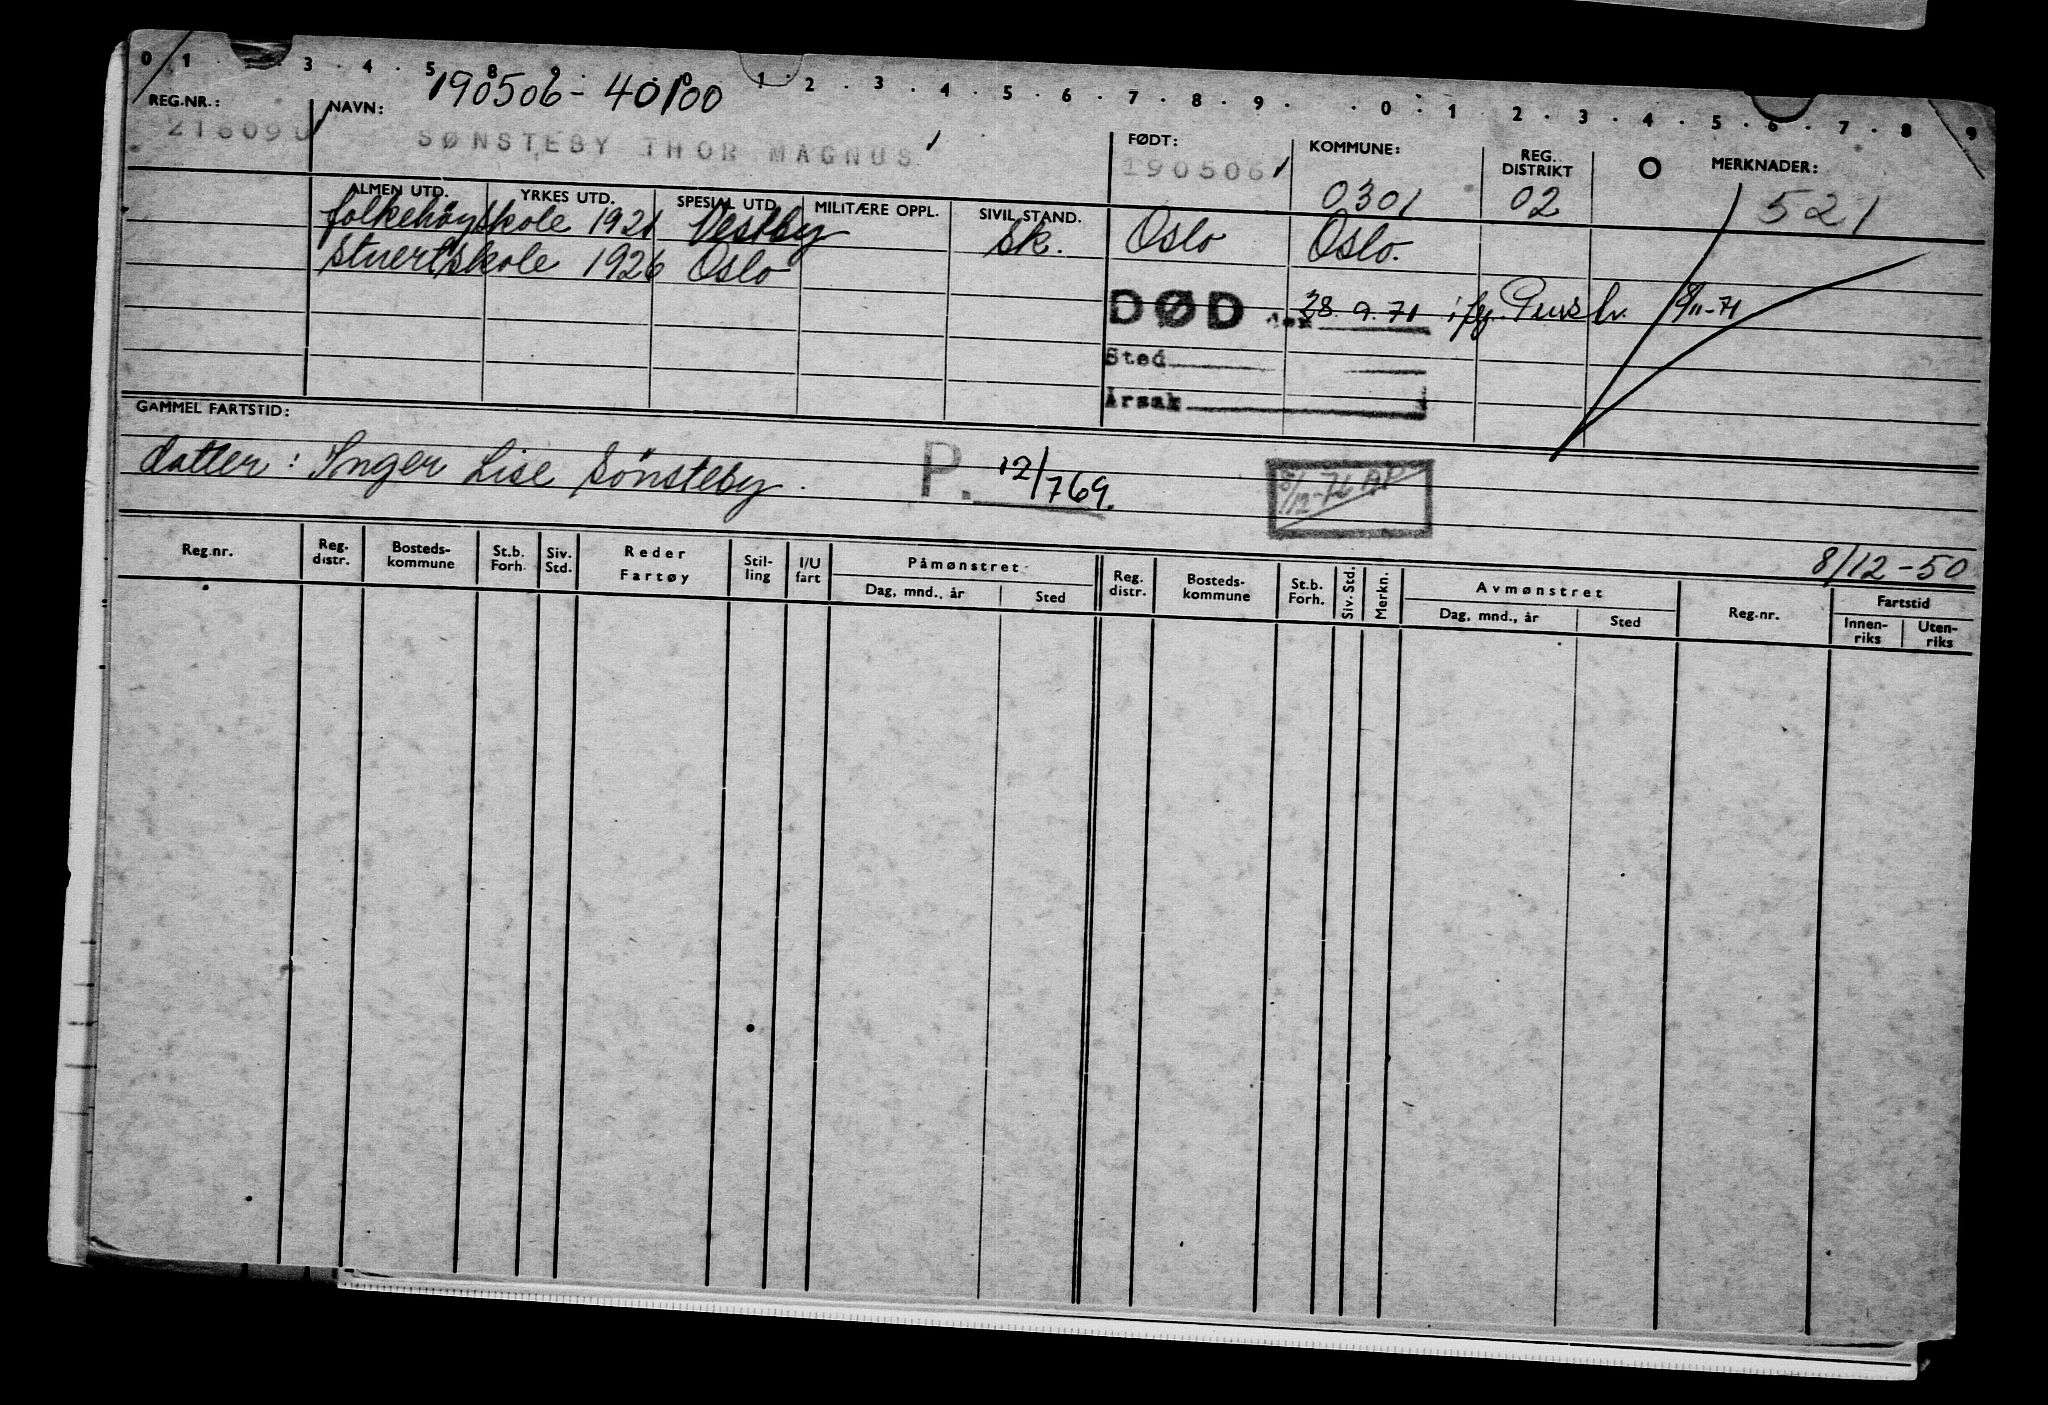 0 1 . . 3 . 4 . 5 8 9 . . 0 1 . 2 . 3 . 4 . 5 . 6 . 7 . 8 . 9 . . 0 . 1 . 2 . 3 . 4 . 5 . 6 . 7 . 8 9
190506-40100
REG.NR.: NAVN: FØDT: KOMMUNE: REG. DISTRIKT O MERKNADER:
SØNSTEBY THOR MAGNUS 190506
0301 02 521
ALMEN UTD. YRKES UTD. SPESIAL UTD. MILITÆRE OPPL. SIVIL STAND.
folkehøyskole 1921 Vestby Sk. Oslo Oslo.
stuertskole 1926 Oslo
DØD den 28.9.71 ifg. 8/11-71
Sted
Årsak
GAMMEL FARTSTID:
datter: Inger Lise Sønsteby. P. 12/769.
8/12-76 AP
8/12-50
Reg.nr. Reg. distr. Bosteds-kommune St.b. Forh. Siv. Std. Reder Fartøy Stil-ling I/U fart Påmønstret Reg. distr. Bosteds-kommune St.b. Forh. Siv. Std. Merkn. Avmønstret Reg.nr. Fartstid
Dag, mnd., år Sted Dag, mnd., år Sted Innen-riks Uten-riks